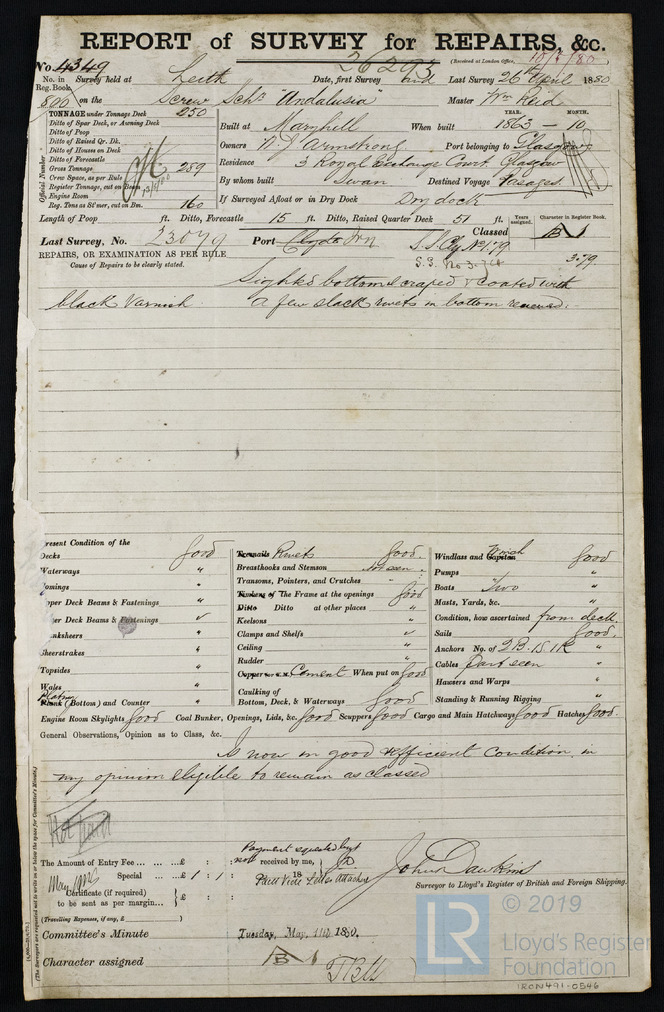 REPORT of SURVEY for REPAIRS, &c.
No. 4349 26293 (Received at London Office, 10/5/80
No. in Survey held at Leith Date, first Survey and Last Survey 26th April 1880
Reg. Book.
800 on the Screw Schr "Andalusia" Master Wm Reid
TONNAGE under Tonnage Deck 250
Ditto of Spar Deck, or Awning Deck
Ditto of Poop
Ditto of Raised Qr. Dk.
Ditto of Houses on Deck
Ditto of Forecastle
Gross Tonnage 289
Crew Space, as per Rule
Register Tonnage, cut on Beam
Engine Room
Reg. Tons as St'mer, cut on Bm. 160
Official Number
YEAR. MONTH.
Built at Maryhill When built 1863 - 10
Owners Armstrong Port belonging to Glasgow
Residence 3 Royal Exchange Court. Glasgow
By whom built Swan Destined Voyage Pasages
If Surveyed Afloat or in Dry Dock Dry dock
Length of Poop ft. Ditto, Forecastle 15 ft. Ditto, Raised Quarter Deck 51 ft.
Years assigned. Character in Register Book.
Classed B 1
Last Survey, No. 23079 Port Clyde Irn S.S. Cly No1.79
S.S. No 3.74 3.79
REPAIRS, OR EXAMINATION AS PER RULE
Cause of Repairs to be clearly stated.
Sighted bottom scraped & coated with
black varnish. A few slack rivets in bottom renewed.
Present Condition of the
Decks good
Waterways "
Comings "
Upper Deck Beams & Fastenings "
Deck Beams & Fastenings
Planksheers "
Sheerstrakes "
Topsides "
Wales "
Plating
Plank (Bottom) and Counter "
Treenails Rivets good
Breasthooks and Stemson Not seen
Transoms, Pointers, and Crutches "
Timbers of The Frame at the openings good
Ditto Ditto at other places "
Keelsons "
Clamps and Shelfs
Ceiling "
Rudder "
Copper Cement When put on good
Caulking of
Bottom, Deck, & Waterways good
Windlass and Capstan Winch good
Pumps "
Boats Two "
Masts, Yards, &c. "
Condition, how ascertained from deck.
Sails good
Anchors No. of 2B. 1S 1K "
Cables Part seen "
Hawsers and Warps "
Standing & Running Rigging "
Engine Room Skylights good Coal Bunker, Openings, Lids, &c. good Scuppers good Cargo and Main Hatchways good Hatches good.
General Observations, Opinion as to Class, &c.
Is now in good & efficient condition. in
my opinion eligible to remain as classed
(The Surveyors are requested not to write on or below the space for Committee's Minute.)
Payment requested by
The Amount of Entry Fee ... ... ... £ : : not received by me,
Special ... ... £ 1 : 1 : 18 Letter attached
Certificate (if required)
to be sent as per margin... } £ : :
(Travelling Expenses, if any, £ )
John Dawkins
Surveyor to Lloyd's Register of British and Foreign Shipping.
Committee's Minute Tuesday, May, 11th 1880.
Character assigned B 1
LR
© 2019
Lloyd's Register
Foundation
IRON491-0546